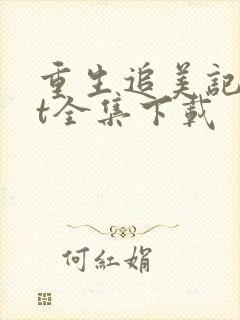 重生追美記
t全集下載
何紅娟